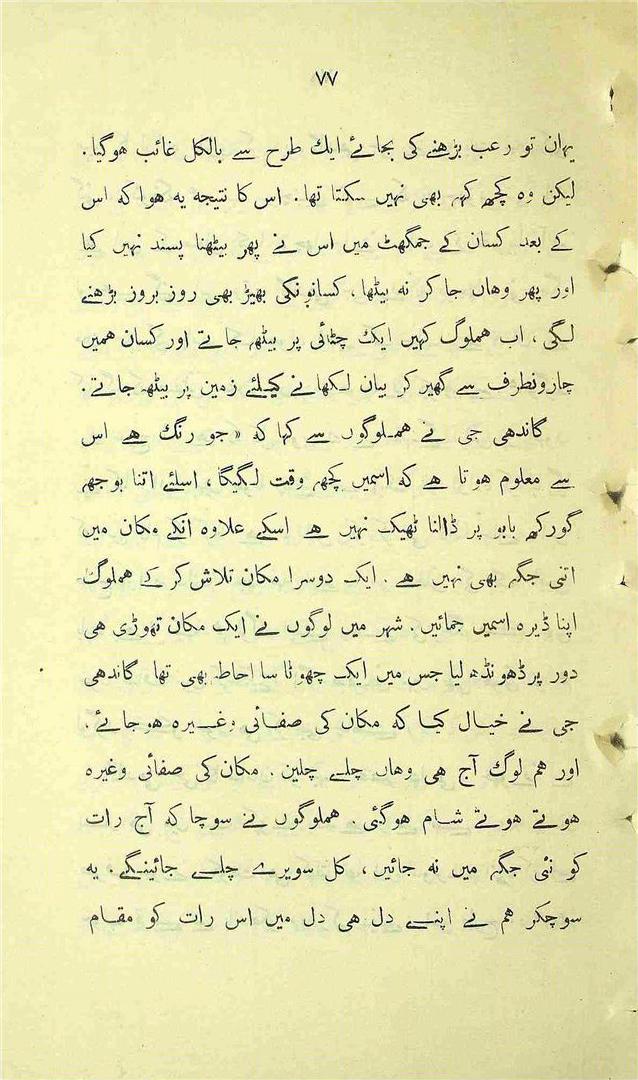 ۷۷
یہان تو رعب بڑھنے کی بجائے ایك طرح سے بالکل غائب هوگیا۔
لیکن وہ کچھ کہہ بھی نہیں سکتا تھا۔ اس کا نتیجہ یہ هوا که اس
کے بعد کسان کے جمگھٹ میں اس نے پھر بیٹھنا پسند نہیں کیا
اور پھر وهاں جا کر نه بیٹھا، کسانونکی بھیڑ بھی روز بروز بڑھنے
لگی، اب هملوگ کہیں ایک چٹائی پر بیٹھ جاتے اور کسان همیں
چارونطرف سے گھیر کر بیان لکھانے کیلئے زمین پر بیٹھ جاتے۔
گاندھی جی نے هملوگوں سے کہا که « جو رنگ هے اس
سے معلوم هوتا هے که اسمیں کچھ وقت لگیگا، اسلئے اتنا بوجھ
گورکھ بابو پر ڈالنا ٹھیک نہیں هے اسکے علاوہ انکے مکان میں
اتنی جگہ بھی نہیں هے۔ ایک دوسرا مکان تلاش کر کے هملوگ
اپنا ڈیرہ اسمیں جمائیں۔ شہر میں لوگوں نے ایک مکان تھوڑی هی
دور پر ڈھونڈھ لیا جس میں ایک چھوٹا سا احاطہ بھی تھا گاندھی
جی نے خیال کیا که مکان کی صفائی وغیرہ هوجائے۔
اور هم لوگ آج هی وهاں چلے چلین۔ مکان کی صفائی وغیرہ
هوتے هوتے شام هوگئی۔ هملوگوں نے سوچا که آج رات
کو نئی جگہ میں نه جائیں، کل سویرے چلے جائینگے۔ یہ
سوچکر هم نے اپنے دل هی دل میں اس رات کو مقام